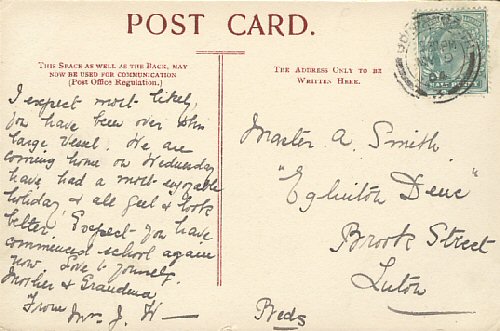 POST CARD.
THIS SPACE AS WELL AS THE BACK, MAY
NOW BE USED FOR COMMUNICATION
(Post Office Regulation.)
THE ADDRESS ONLY TO BE
WRITTEN HERE.
I expect most likely,
you have been over
large vessel. We are
coming home on Wednesday
have had a most enjoyable
holiday & all feel & look
better. Expect you have
commenced school again
now. Love to yourself,
Mother & Grandma
From Mrs J. H—
Master A. Smith
"Eglinton Dene"
Brook Street
Luton
Beds